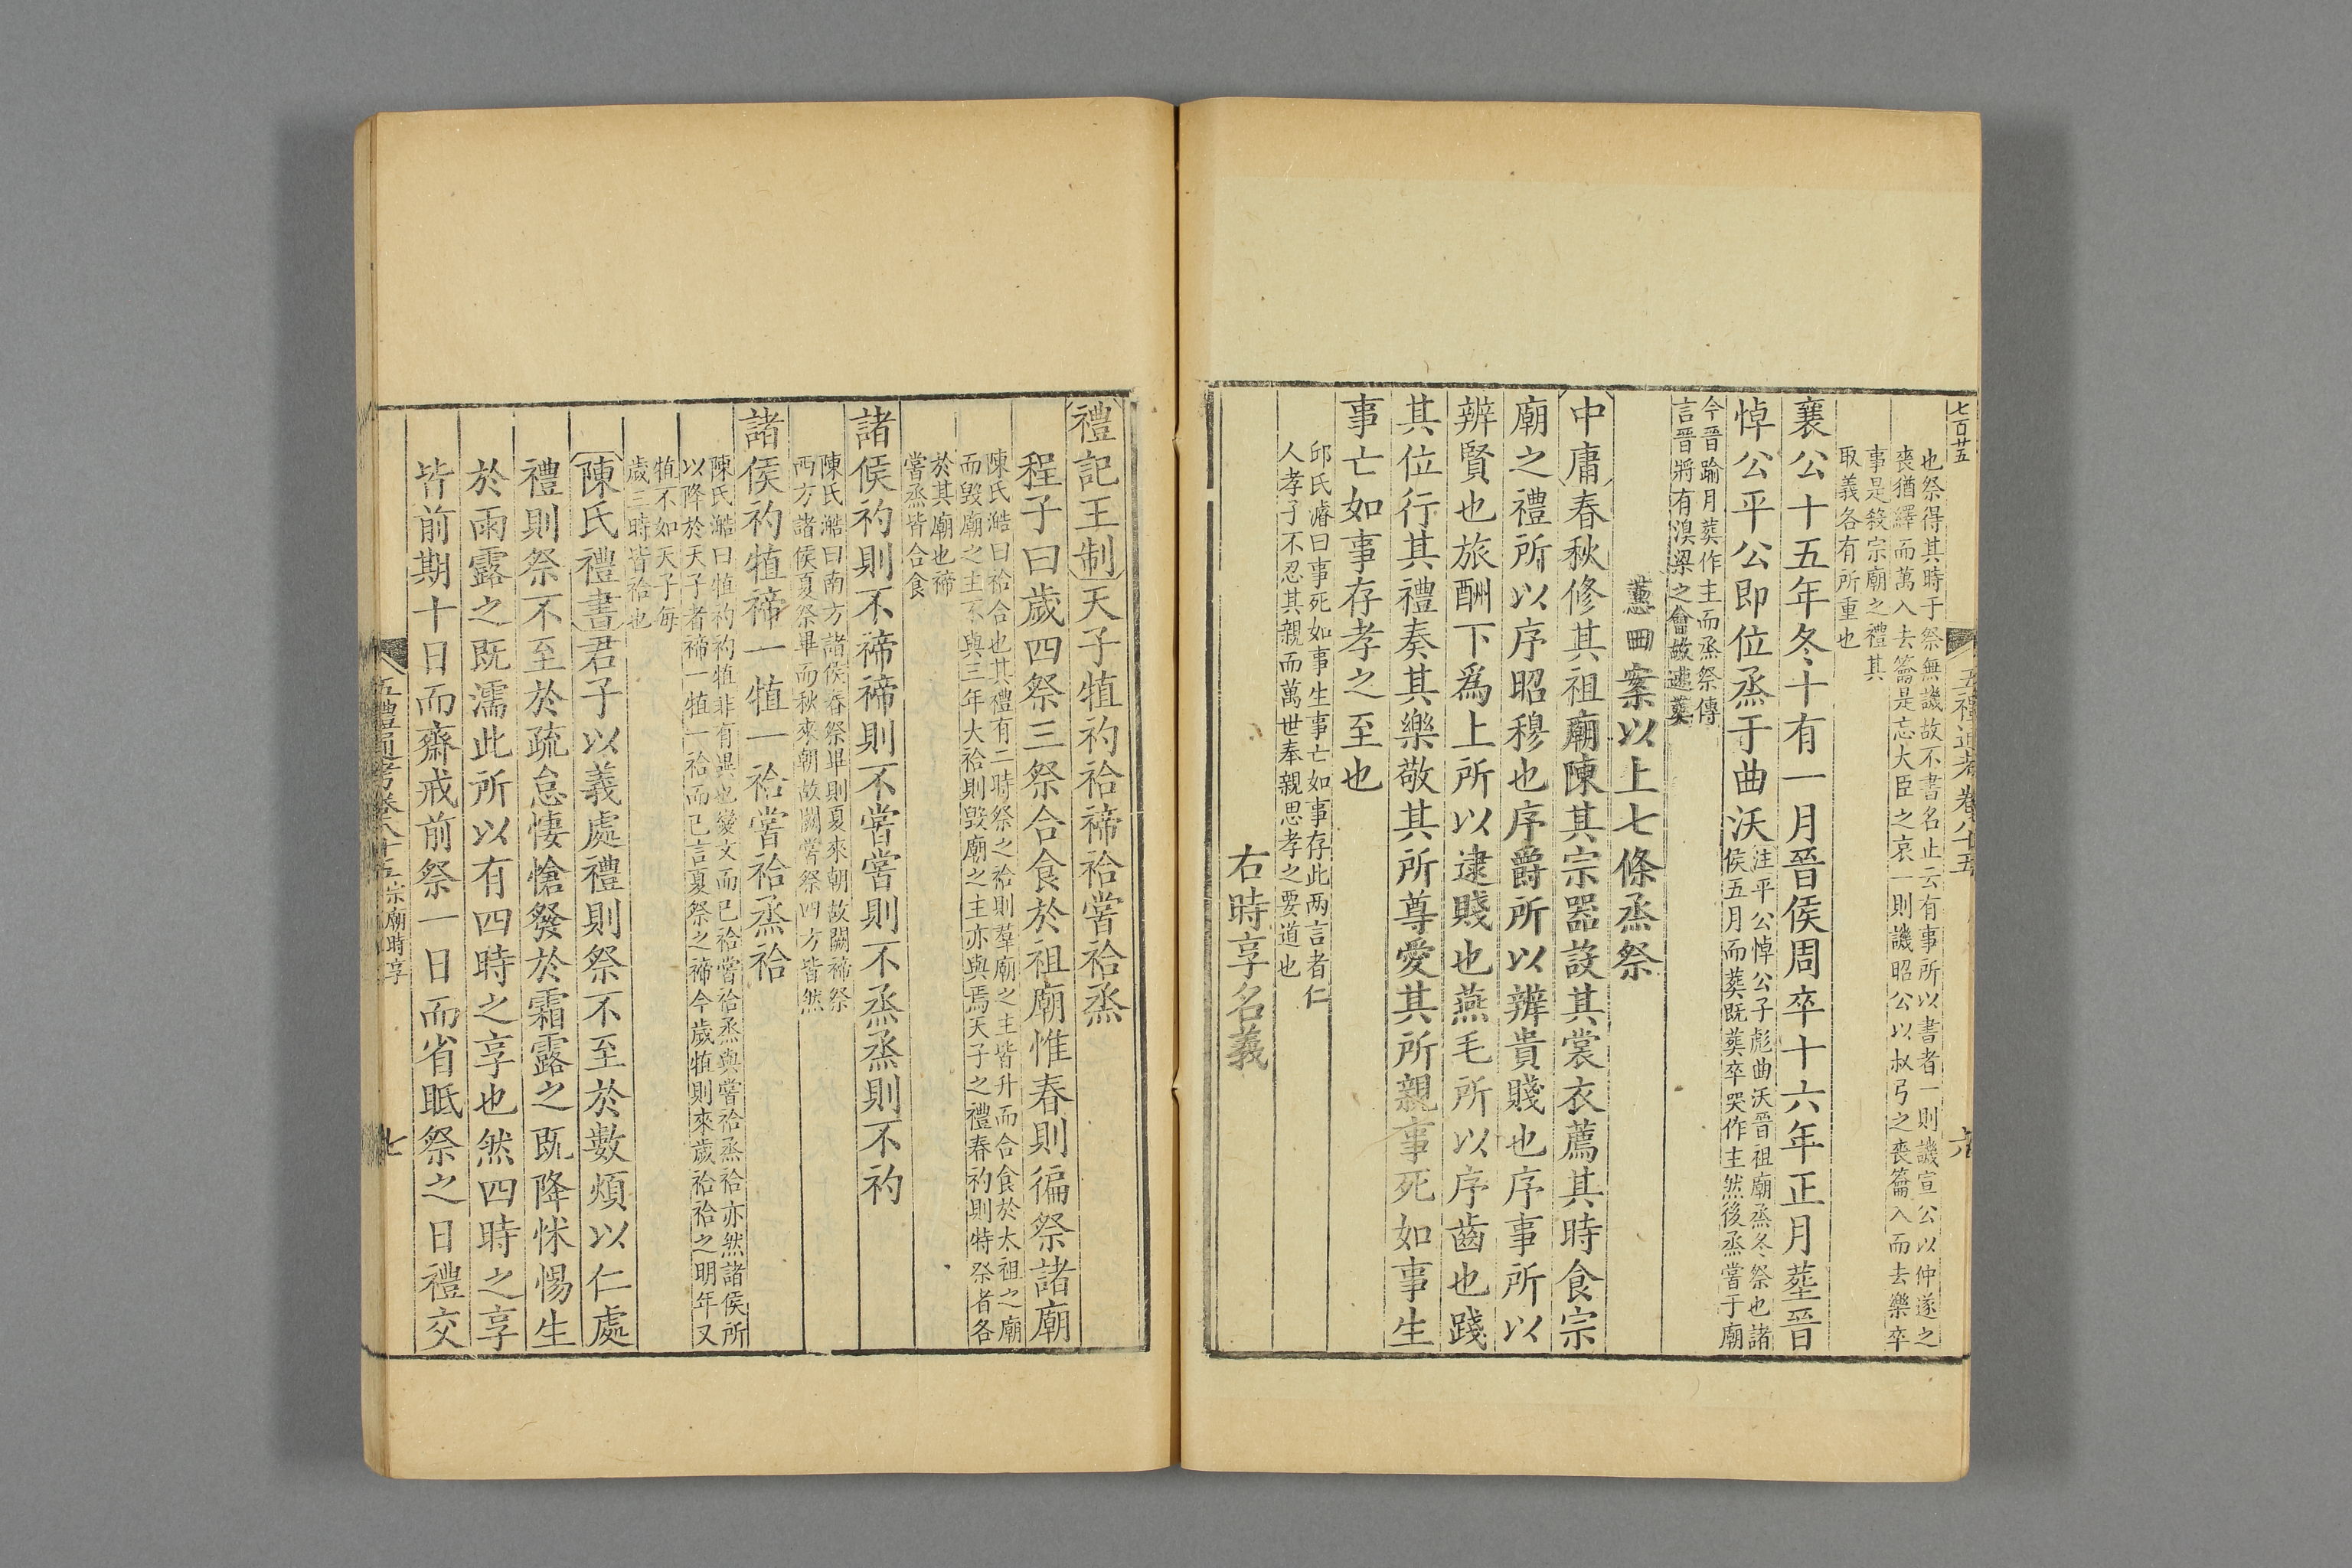 七百廿五
也祭得其時于祭無譏故不書名止云有事所以書者一則譏宣公以仲遂之
喪猶繹而萬入去籥是忘大臣之哀一則譏昭公以叔弓之喪籥入而去樂卒
事是殺宗廟之禮其
取義各有所重也
襄公十五年冬十有一月晉侯周卒十六年正月葬晉
悼公平公即位烝于曲沃
注平公悼公子彪曲沃晉祖廟烝冬祭也諸
侯五月而葬既葬卒哭作主然後烝嘗于廟
今晉踰月葬作主而烝祭傳
言晉將有溴梁之會故速葬
蕙田案以上七條烝祭
中庸春秋修其祖廟陳其宗器設其裳衣薦其時食宗
廟之禮所以序昭穆也序爵所以辨貴賤也序事所以
辨賢也旅酬下爲上所以逮賤也燕毛所以序齒也踐
其位行其禮奏其樂敬其所尊愛其所親事死如事生
事亡如事存孝之至也
邱氏濬曰事死如事生事亡如事存此两言者仁
人孝子不忍其親而萬世奉親思孝之要道也
右時享名義
五禮通考卷八十五
六
禮記王制天子犆礿祫禘祫嘗祫烝
程子曰歲四祭三祭合食於祖廟惟春則徧祭諸廟
陳氏澔曰祫合也其禮有二時祭之祫則羣廟之主皆升而合食於太祖之廟
而毀廟之主不與三年大祫則毀廟之主亦與焉天子之禮春礿則特祭者各
於其廟也禘
嘗烝皆合食
諸侯礿則不禘禘則不嘗嘗則不烝烝則不礿
陳氏澔曰南方諸侯春祭畢則夏來朝故闕禘祭
西方諸侯夏祭畢而秋來朝故闕嘗祭四方皆然
諸侯礿犆禘一犆一祫嘗祫烝祫
陳氏澔曰犆礿礿犆非有異也變文而已祫嘗祫烝與嘗祫烝祫亦然諸侯所
以降於天子者禘一犆一祫而已言夏祭之禘今歲犆則來歲祫祫之明年又
犆不如天子每
歲三時皆祫也
陳氏禮書君子以義處禮則祭不至於數煩以仁處
禮則祭不至於疏怠悽愴發於霜露之既降怵惕生
於雨露之既濡此所以有四時之享也然四時之享
皆前期十日而齋戒前祭一日而省眂祭之日禮交
五禮通考卷八十五宗廟時享
七